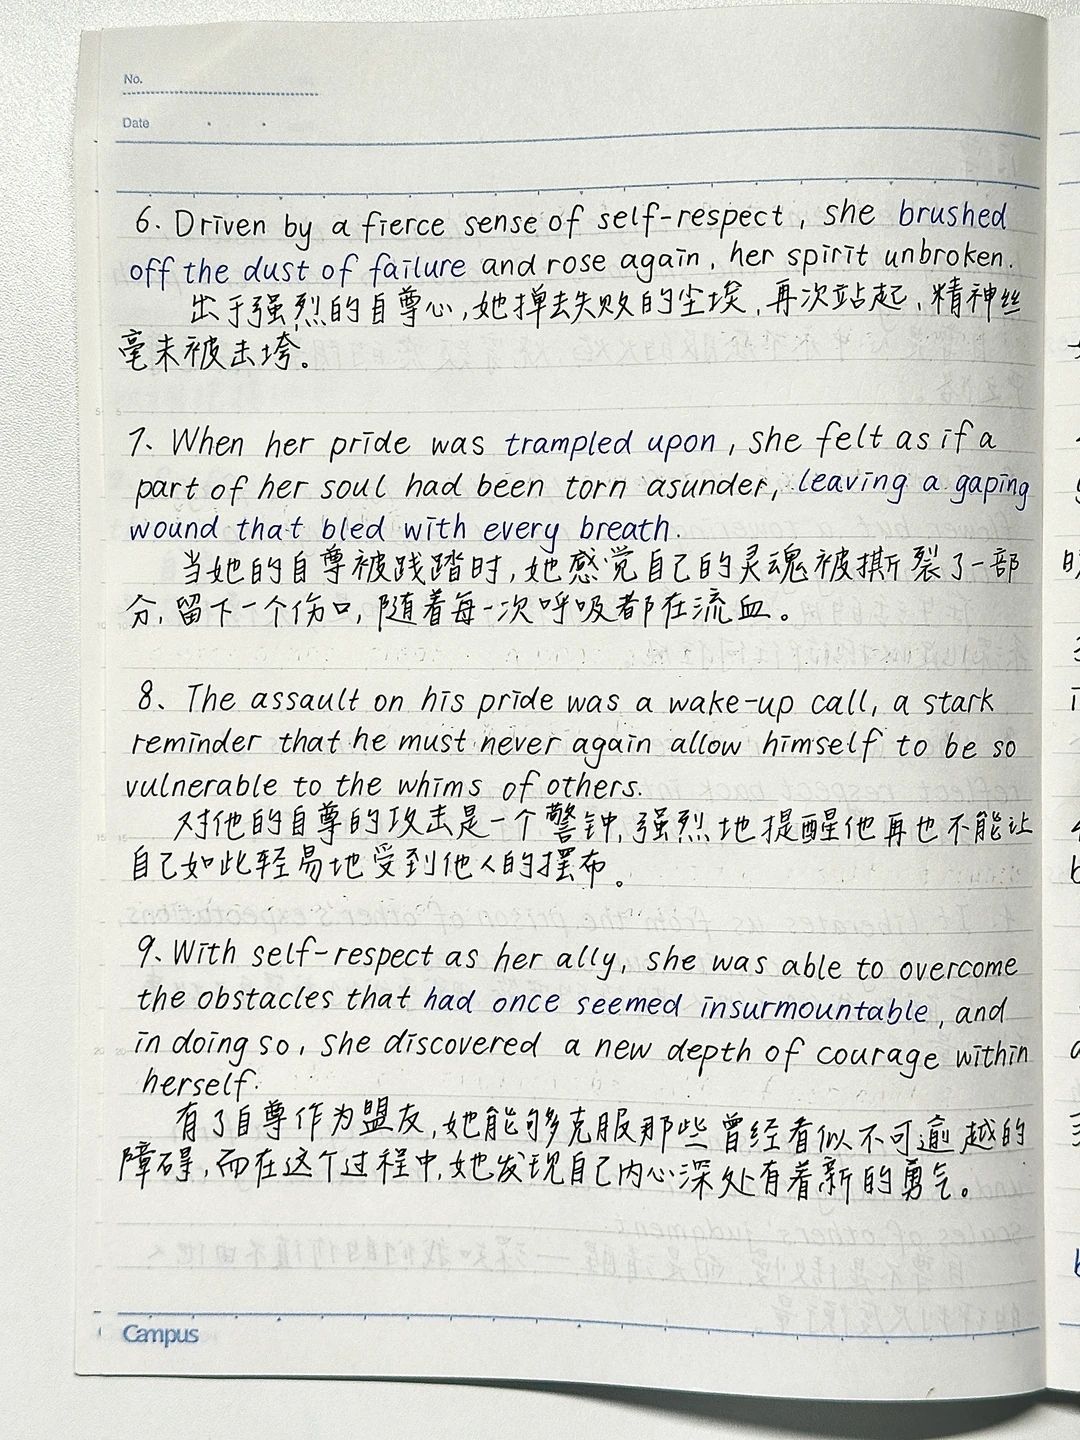 No.
Date
6. Driven by a fierce sense of self-respect, she brushed
off the dust of failure and rose again, her spirit unbroken.
出于强烈的自尊心,她掸去失败的尘埃,再次站起,精神丝
毫未被击垮。
7、When her pride was trampled upon, she felt as if a
part of her soul had been torn asunder, leaving a gaping
wound that bled with every breath.
当她的自尊被践踏时,她感觉自己的灵魂被撕裂了一部
分,留下一个伤口,随着每一次呼吸都在流血。
8、The assault on his pride was a wake-up call, a stark
reminder that he must never again allow himself to be so
vulnerable to the whims of others.
对他的自尊的攻击是一个警钟,强烈地提醒他再也不能让
自己如此轻易地受到他人的摆布。
9、With self-respect as her ally, she was able to overcome
the obstacles that had once seemed insurmountable, and
in doing so, she discovered a new depth of courage within
herself.
有了自尊作为盟友,她能够克服那些曾经看似不可逾越的
障碍,而在这个过程中,她发现自己内心深处有着新的勇气。
Campus